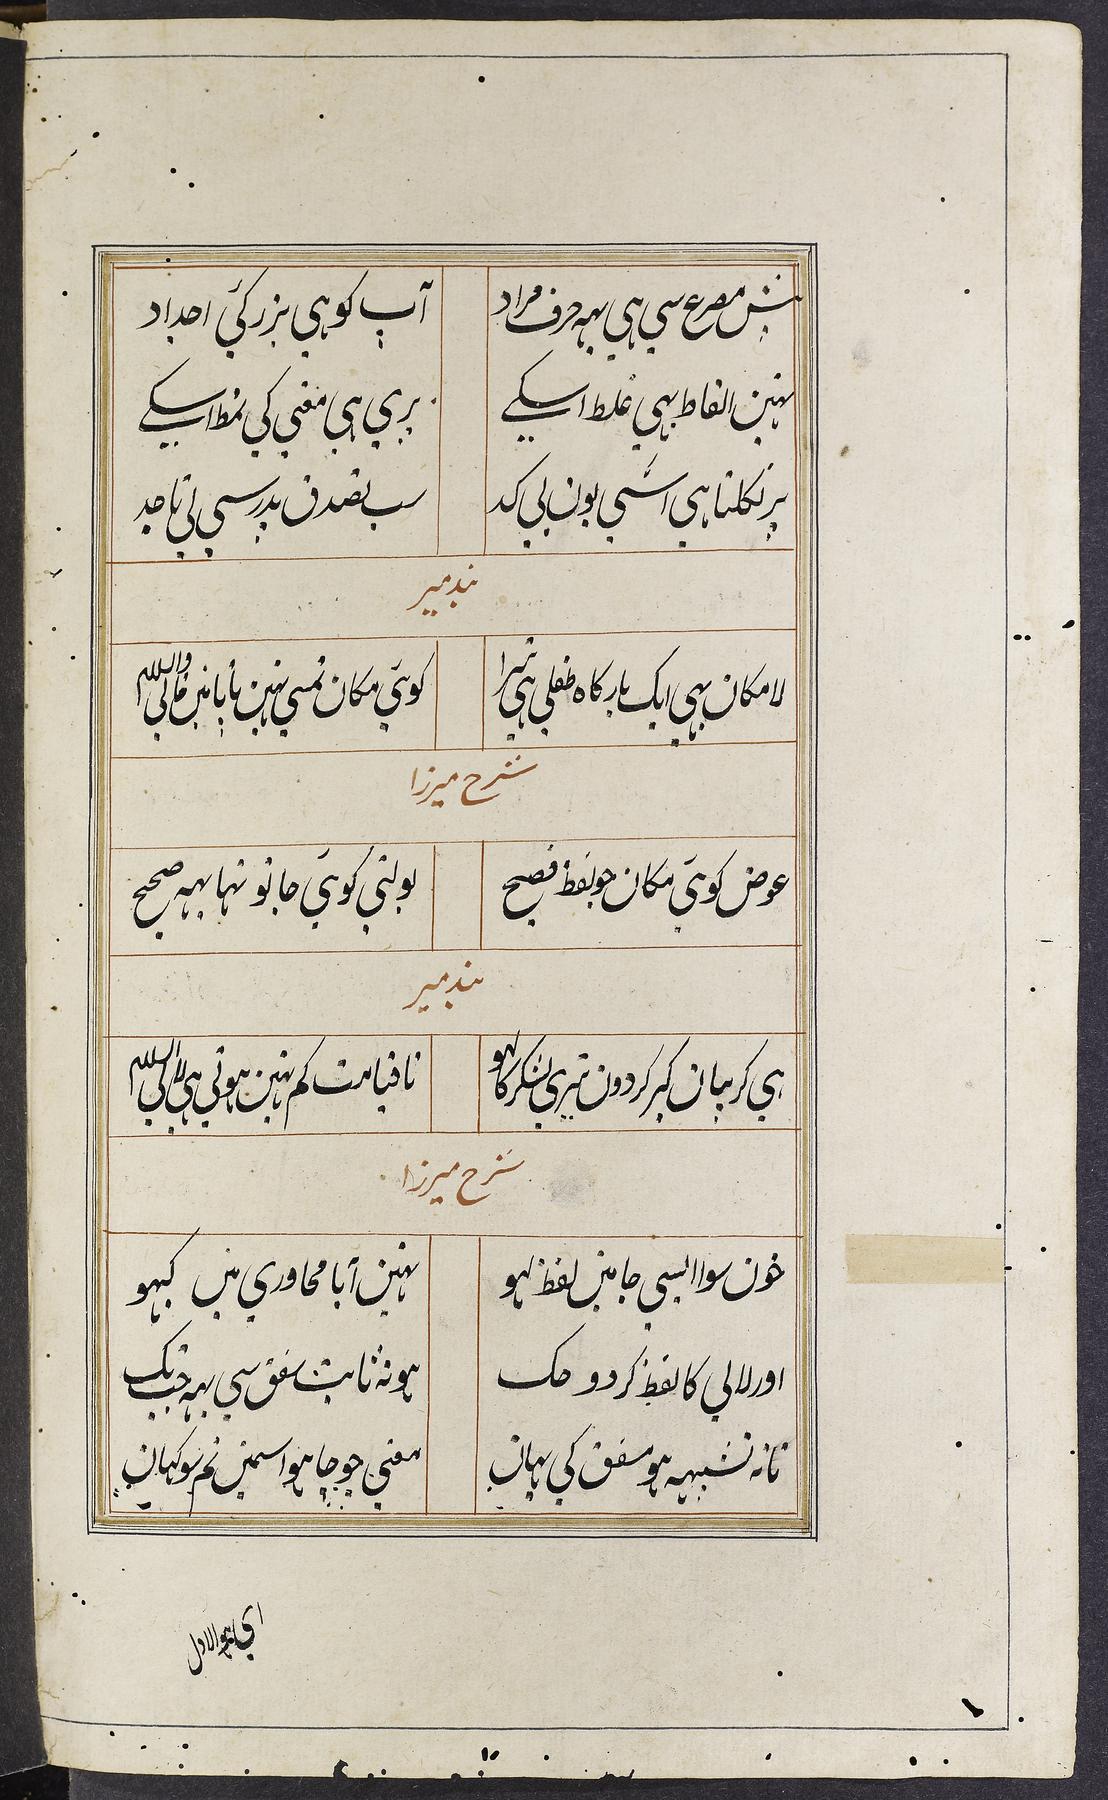 پیش مصرع سی ہی یہہ حرف مراد
آپ کو ہی بزرکئ اجداد
نہین الفاظ بہی غلط اسکے
بری ہی معنی کی نمط اسکے
پر نکلتا ہی اسّی یون بی کد
سب تصدق پدر سی لی تا جد
بند میر
لامکان بہی ایک بارکاہ ظلی ہی ترا
کوئی مکان تمسی نہین پایا مین خالی واللہ
شرح میرزا
عوض کوئی مکان جو لفظ فصیح
بولتی کوئی جا تو تہا یہہ صحیح
بند میر
ہی کریبان کیر کردون تیری لشکر کا لہو
تا قیامت کم نہین ہوتی ہی لالی اللہ
شرح میرزا
خون سوا ایسی جا مین لفظ لہو
نہین آیا محاوری مین کبہو
اور لالی کا لفظ کردو حک
ہو نہ ثابت شفق سی یہہ جب تک
تا نہ تشبیہہ ہو شفق کی یہان
معنی جو چاہو اسمین تم سو کہان
ای ہوالاول